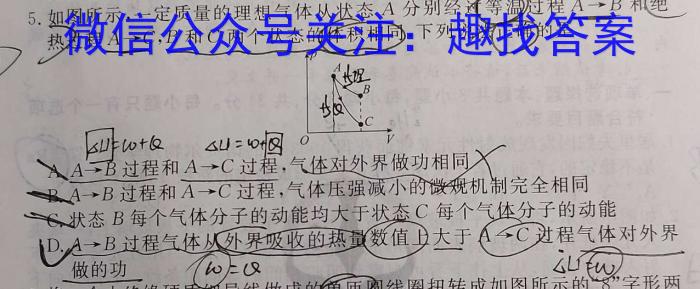 5. 如图所示,一定质量的理想气体从状态 A 分别经过等温过程 A→B 和绝
微信公众号关注:趣找答案
热 A→C,B 和 C 两个状态的体积相同,下列
p
A
B
C
O
V
ΔU=W+Q ΔU=W+Q
A. A→B 过程和 A→C 过程,气体对外界做功相同
B. A→B 过程和 A→C 过程,气体压强减小的微观机制完全相同
C. 状态 B 每个气体分子的动能均大于状态 C 每个气体分子的动能
D. A→B 过程气体从外界吸收的热量数值上大于 A→C 过程气体对外界
做的功 W=Q ΔU=W